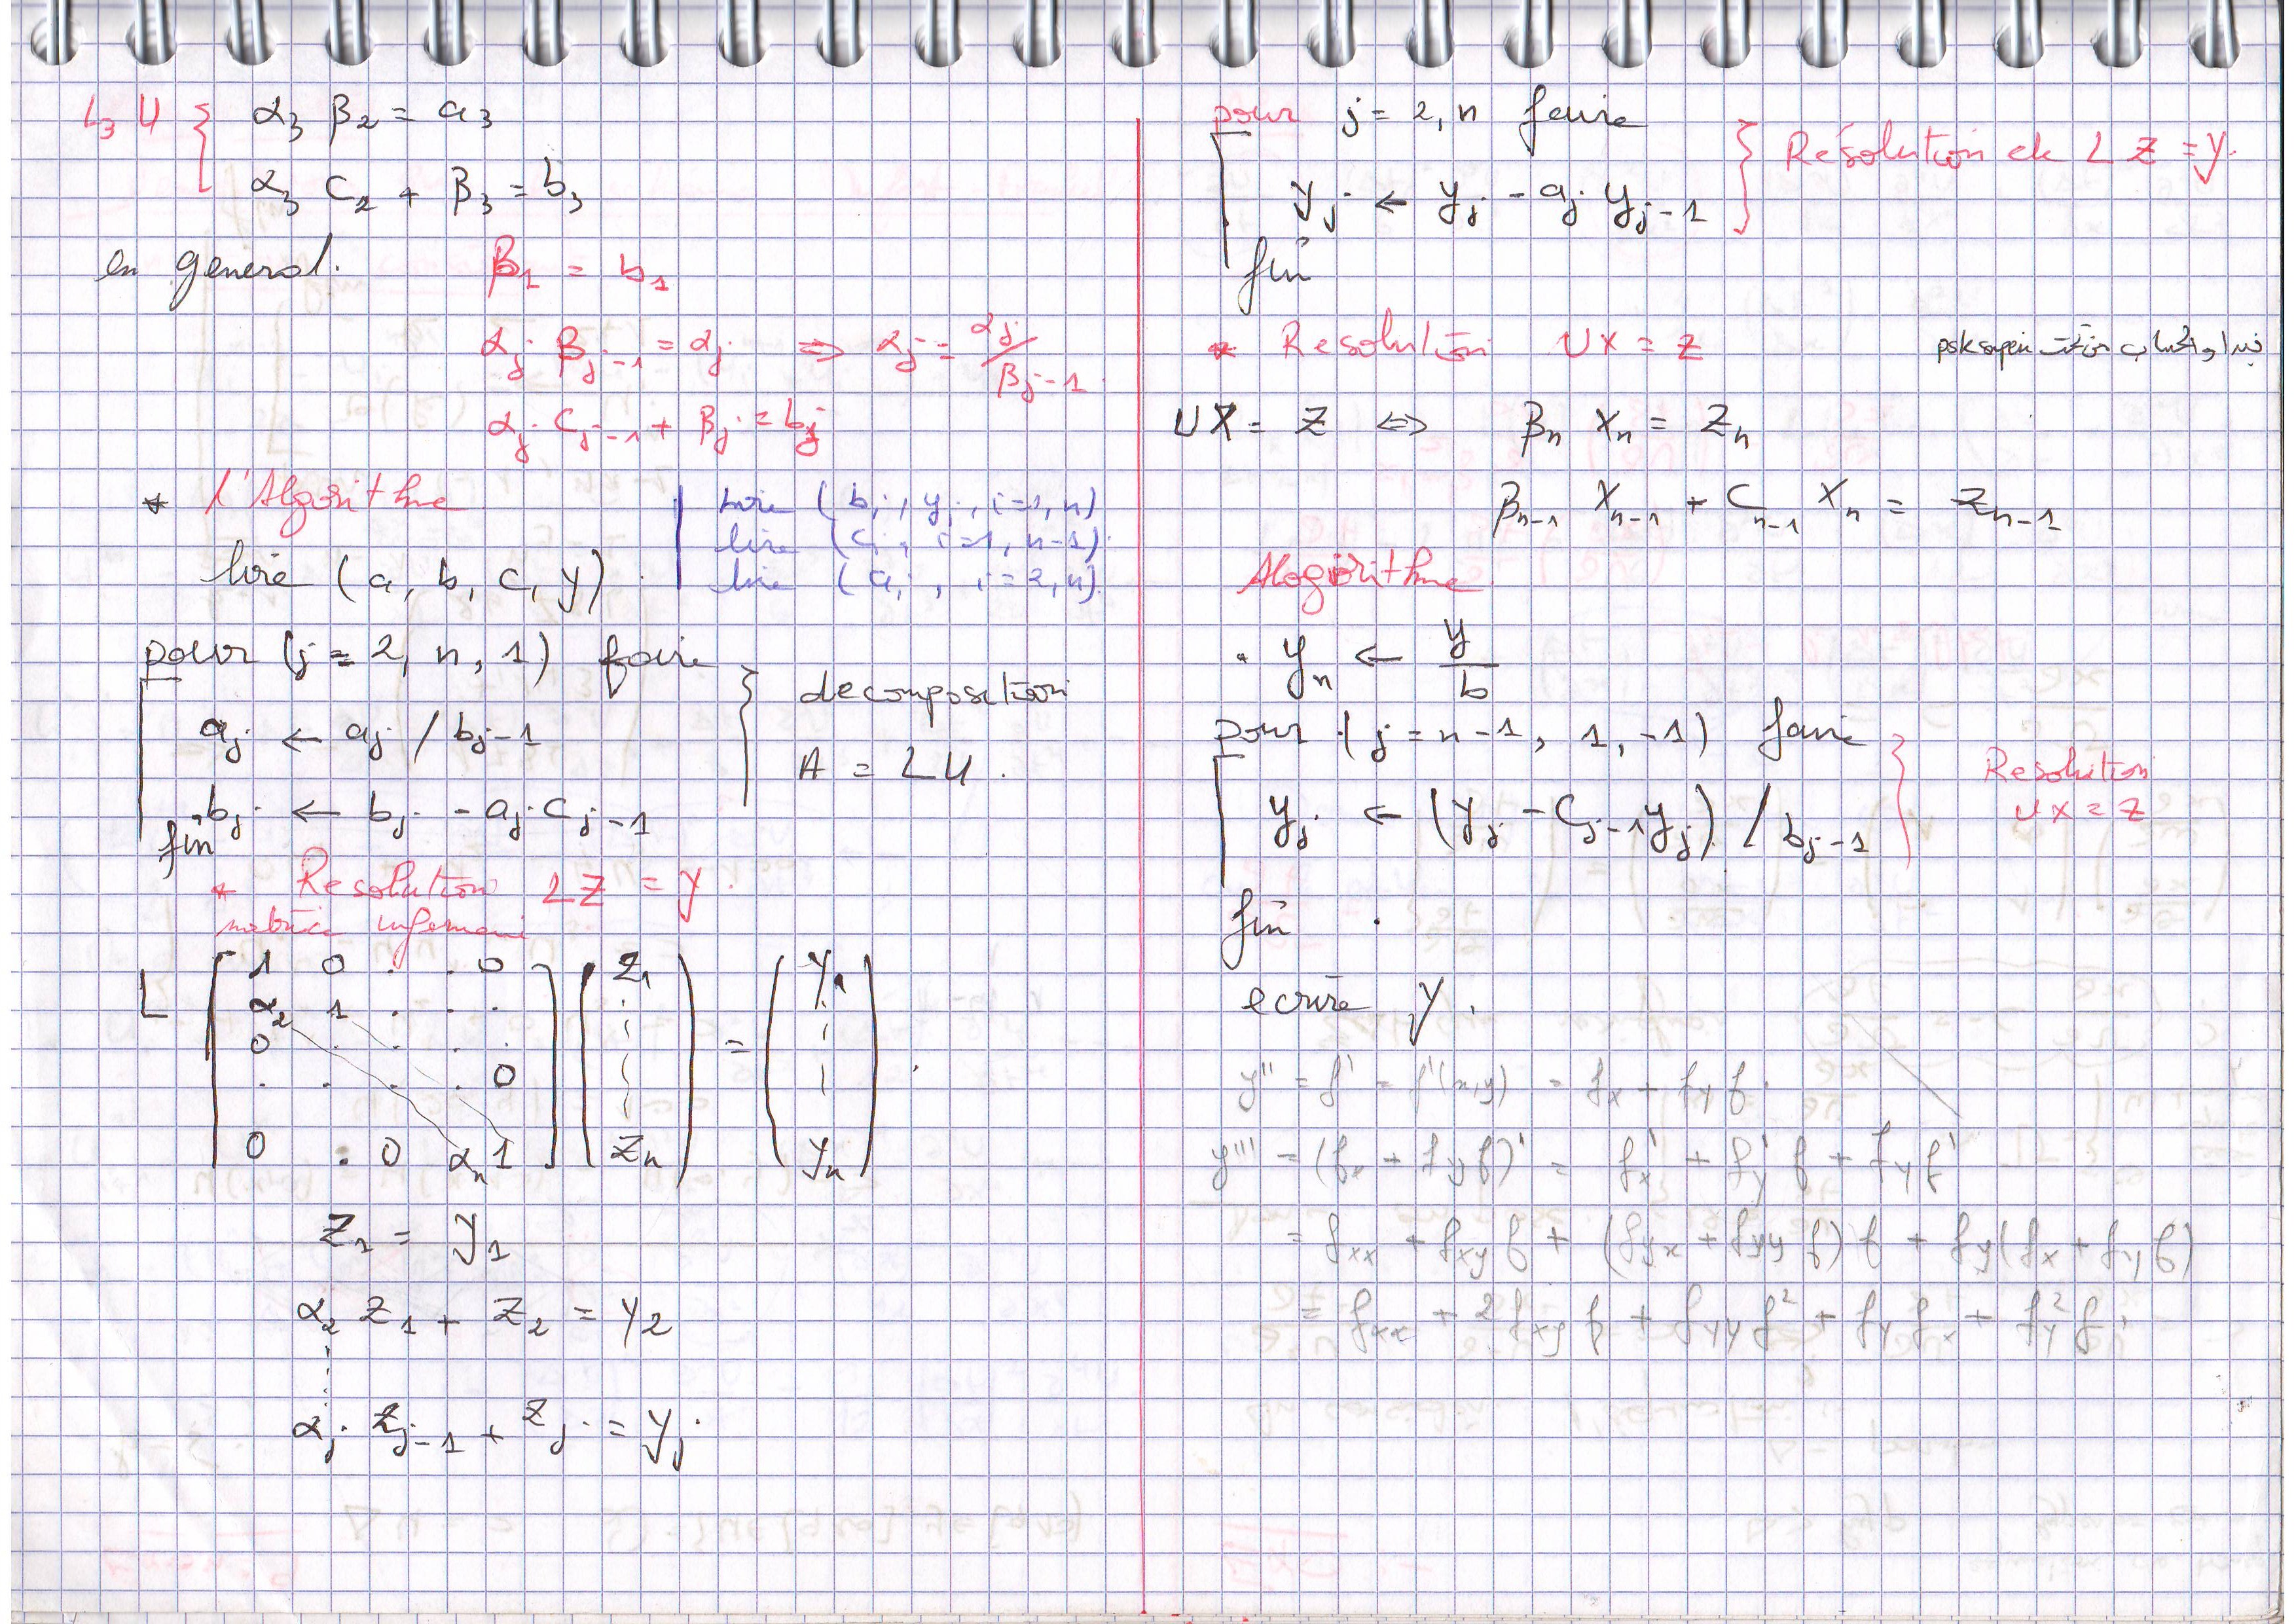 L3 U { α3 β2 = a3
α3 C2 + β3 = b3
en general. β1 = b1
αj βj-1 = αj => αj = αj / βj-1
αj Cj-1 + βj = bj
* l'Algorithme
lire (bi, yi, i=1, n)
lire (Ci, i=1, n-1).
lire (ai, i=2, n).
lire (a, b, c, y).
pour (j = 2, n, 1) faire
aj ← aj / bj-1
bj ← bj - aj Cj-1
fin
} decomposition
A = LU.
* Resolution LZ = y.
matrice inferieure
L [1 0 . . 0] (Z1) = (y1)
α2 1 . . .
0 . . . .
. . . . 0
0 . 0 αn 1 Zn yn
Z1 = y1
α2 Z1 + Z2 = y2
αj Zj-1 + Zj = yj
pour j = 2, n faire
yj ← yj - aj yj-1
fin
} Résolution de LZ = y.
* Resolution UX = Z
UX = Z <=> βn Xn = Zn
βn-1 Xn-1 + Cn-1 Xn = Zn-1
Alogorithme
. yn ← y / b
pour (j = n-1, 1, -1) faire
yj ← (yj - Cj-1 yj) / bj-1
} Resolution
UX = Z
fin.
ecrire y.
y'' = f' = f'(x,y) = fx + fy f.
y''' = (fx + fy f)' = fx' + fy' f + fy f'
= fxx + fxy f + (fyx + fyy f) f + fy(fx + fy f)
= fxx + 2fxy f + fyy f² + fy fx + fy² f.